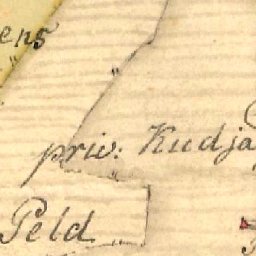 ens
priv: Kudja
Peld